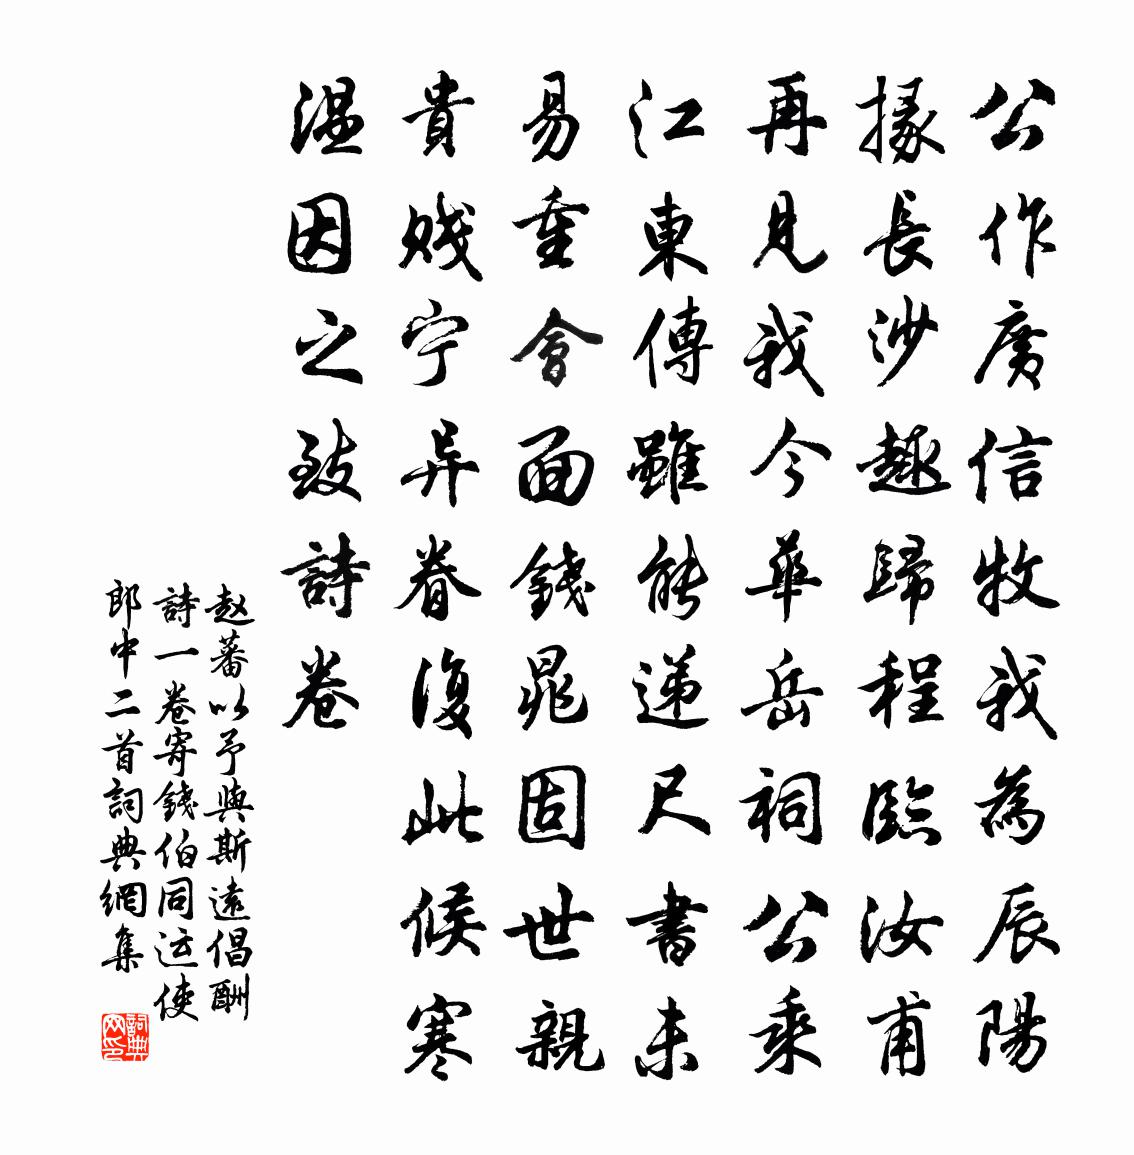 公作廣信牧我為辰陽
掾長沙趣歸程臨汝甫
再見我今華岳祠公乘
江東傳雖能递尺書未
易重會面錢晁固世親
貴賤宁异眷復此候寒
温因之致詩卷
赵蕃以予與斯遠倡酬
詩一卷寄錢伯同运使
郎中二首詞典網集
詞典网印